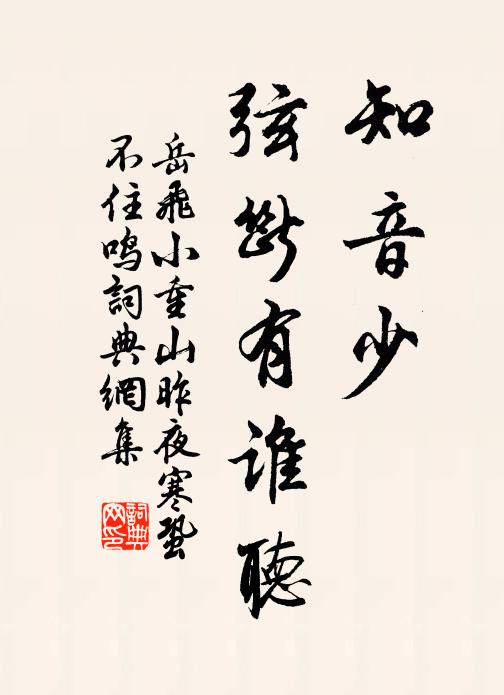 知音少
弦斷有谁聽
岳飛小重山昨夜寒蛩
不住鸣詞典網集
詞典
网印